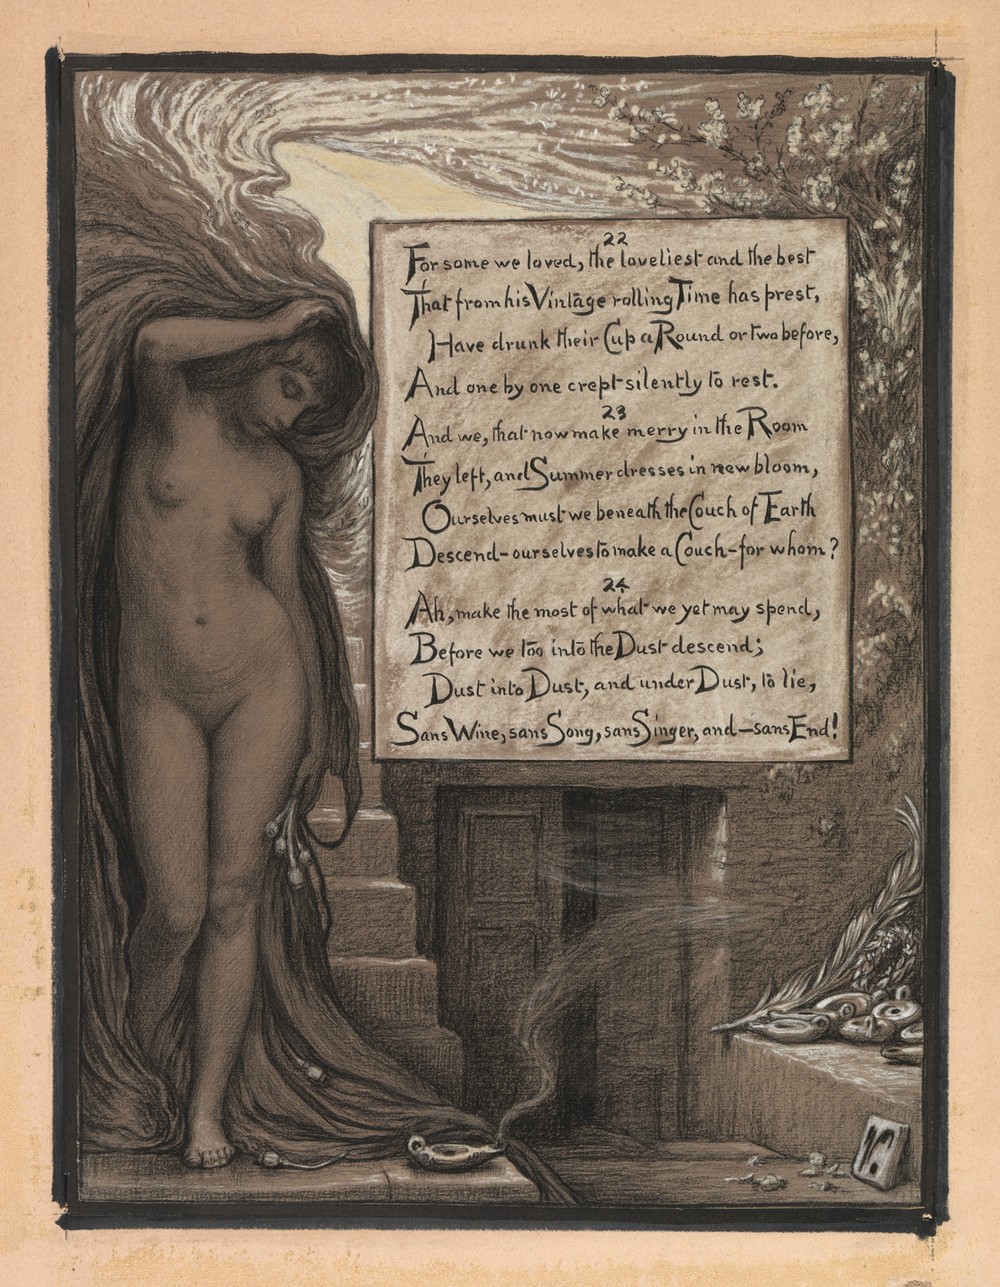 22
For some we loved, the loveliest and the best
That from his Vintage rolling Time has prest,
Have drunk their Cup a Round or two before,
And one by one crept silently to rest.
23
And we, that now make merry in the Room
They left, and Summer dresses in new bloom,
Ourselves must we beneath the Couch of Earth
Descend-ourselves to make a Couch-for whom?
24
Ah, make the most of what we yet may spend,
Before we too into the Dust descend;
Dust into Dust, and under Dust, to lie,
Sans Wine, sans Song, sans Singer, and—sans End!